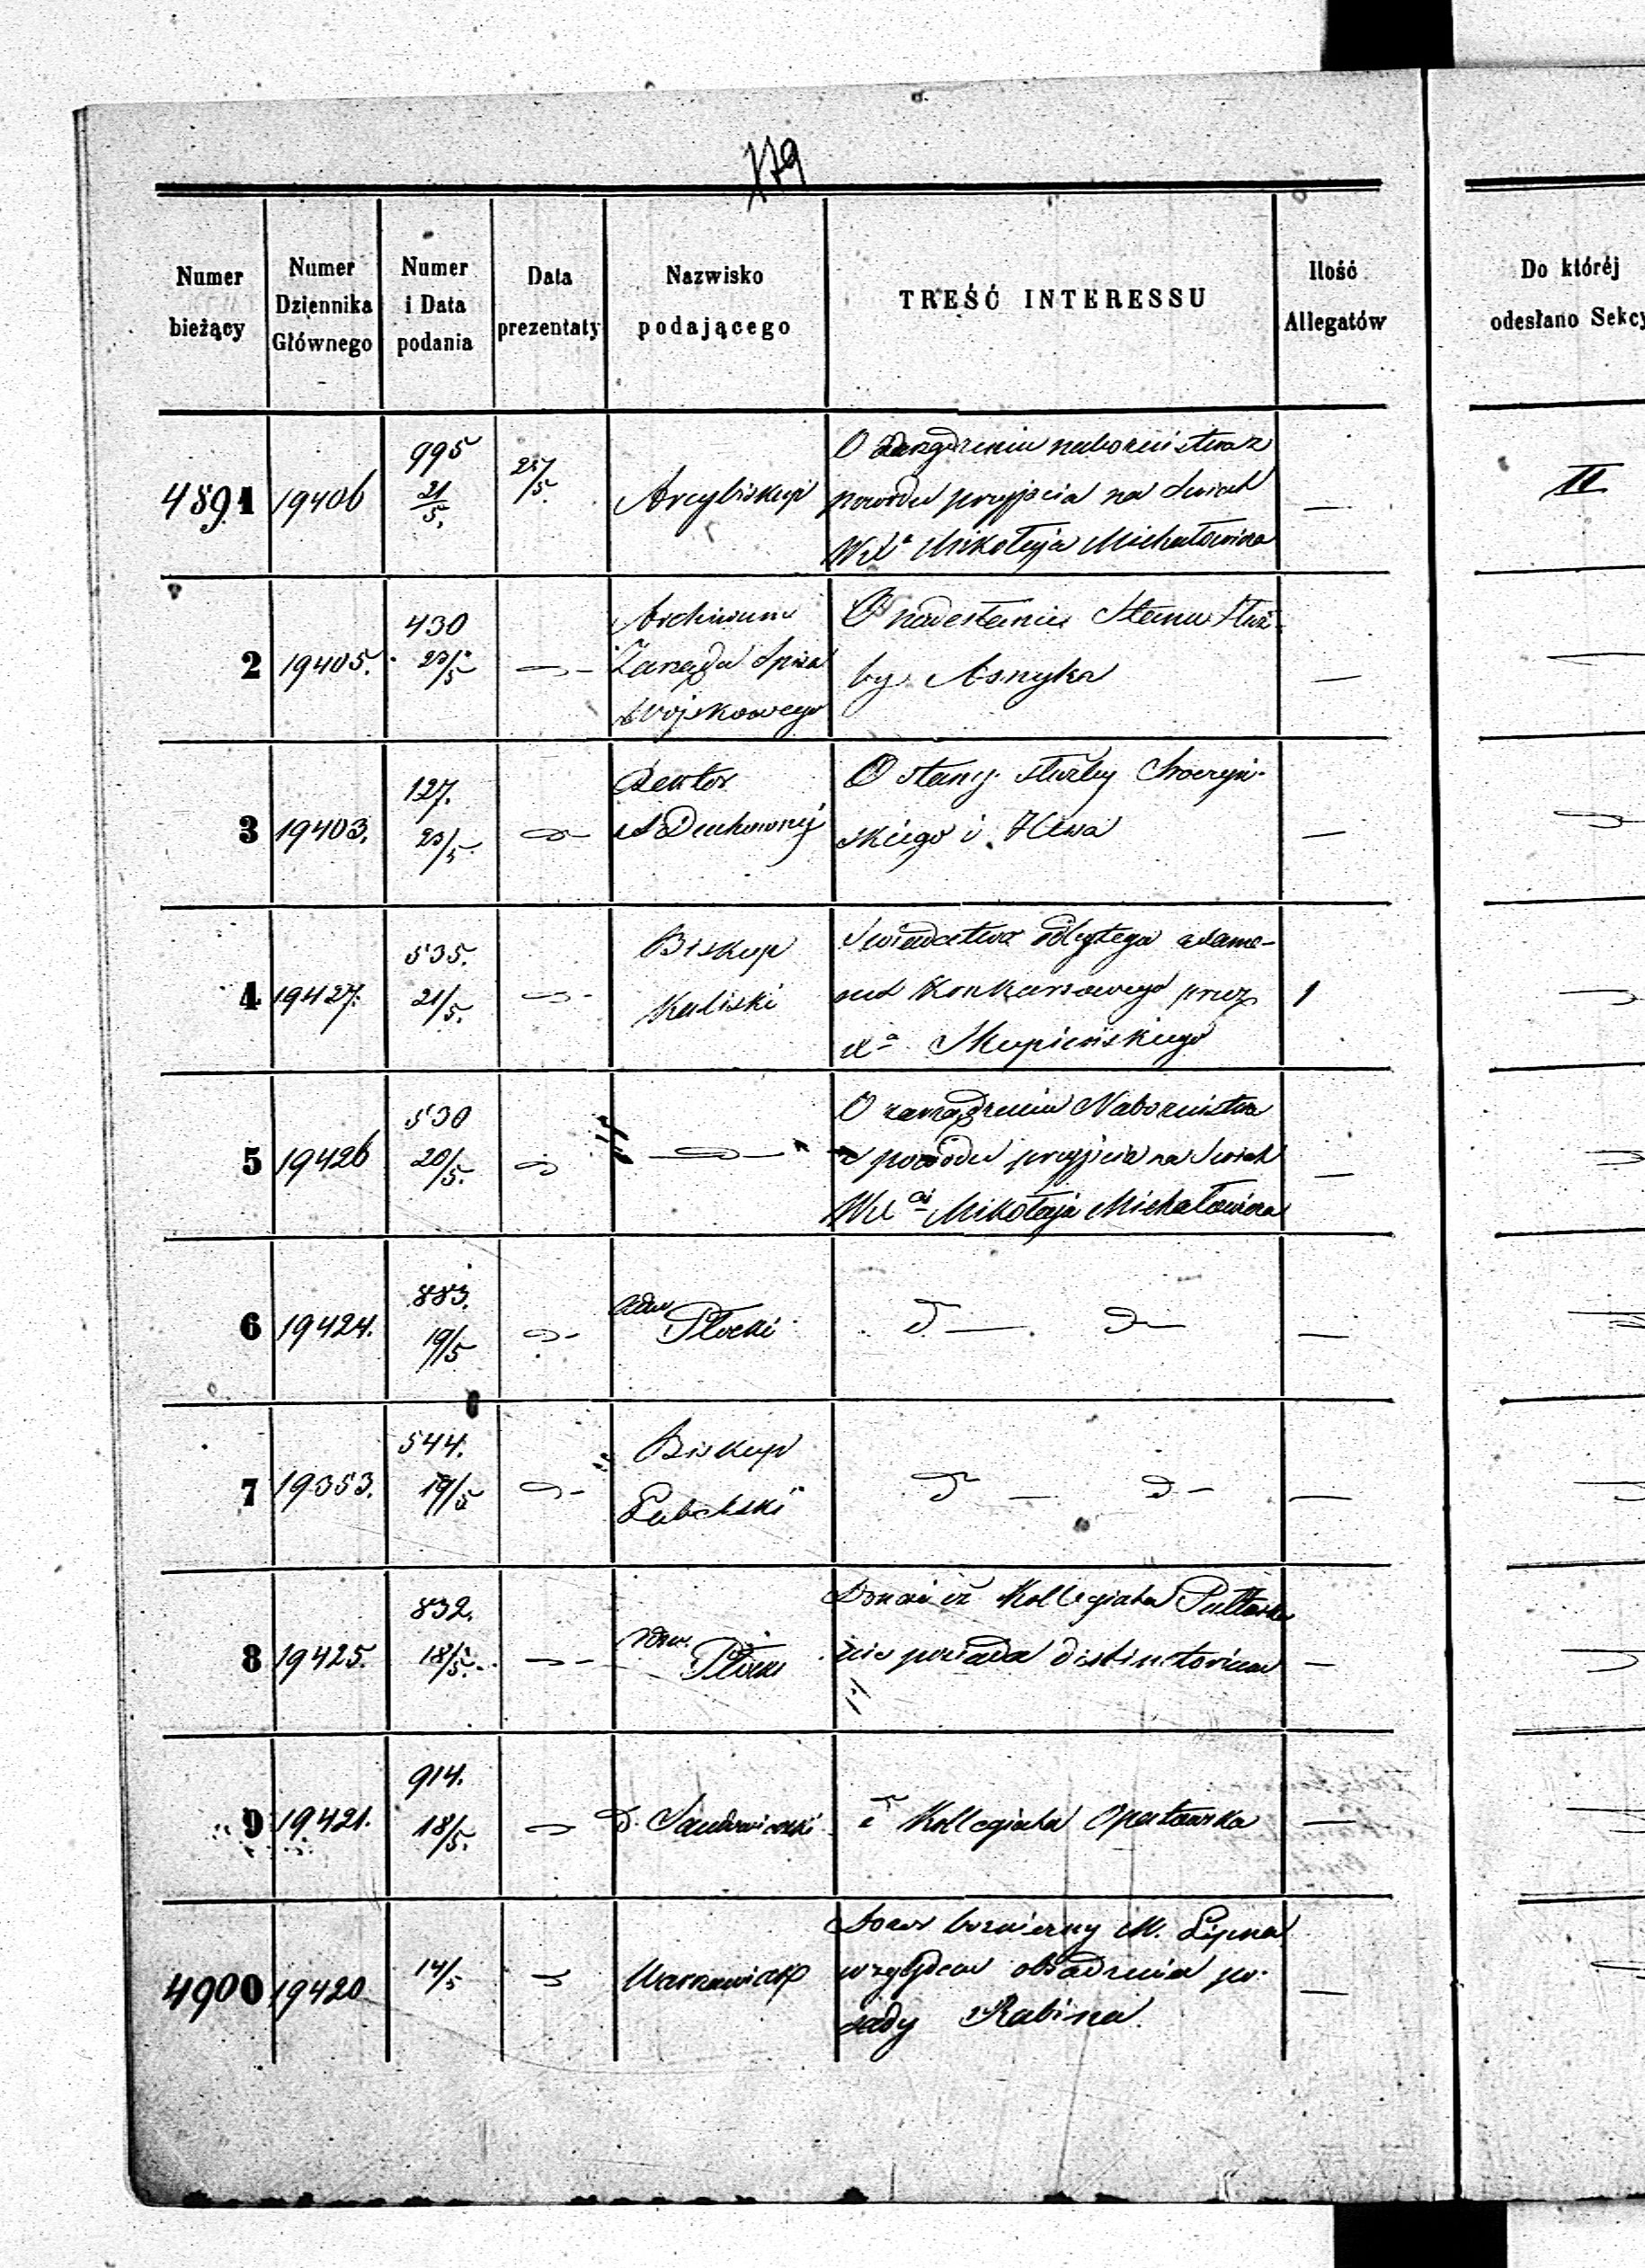 179
Numer bieżący
Numer Dziennika Głównego
Numer i Data podania
Data prezentaty
Nazwisko podającego
TREŚĆ INTERESSU
Ilość Allegatów
Do któréj odesłano Sekcy
4891 19406 995 21/5. 27/5. Arcybiskup
O zarządzeniu nabożeństwa z
powodu przyjścia na świat
Wa Mikołaja Michałowicza
—
II
2 19405. 430 23/5
Archiwum
Zarządu
Wojskowego
O nadesłanie Stanu służ-
by Asnyka
—
3 19403. 127. 23/5
Rektor
A Duchownej
O stanie służby
skiego i
—
4 19427. 535. 21/5.
Biskup
Kaliski
Świadectwo odbytego exame-
nu Konkursowego przez
xa Skupieńskiego
1
5 19426 530 20/5.
O zarządzeniu Nabożeństwa
z powodu przyjścia na świat
Mikołaja Michałowicza
—
6 19424. 883. 19/5
Adm. Płocki
—
7 19353. 544. 19/5
Biskup
Lubelski
—
8 19425. 832. 18/5.
Adm. Płocki
Donosi iż Kollegiata Pułtuska
nie posiada distinctorium
—
9 19421. 914. 18/5.
D. Sandomierski
iż Kollegiata Opatowska
—
4900 19420 14/5
Warszawiak
Dozor bożniczny M. Lipna
względem obsadzenia po-
sady Rabina.
—